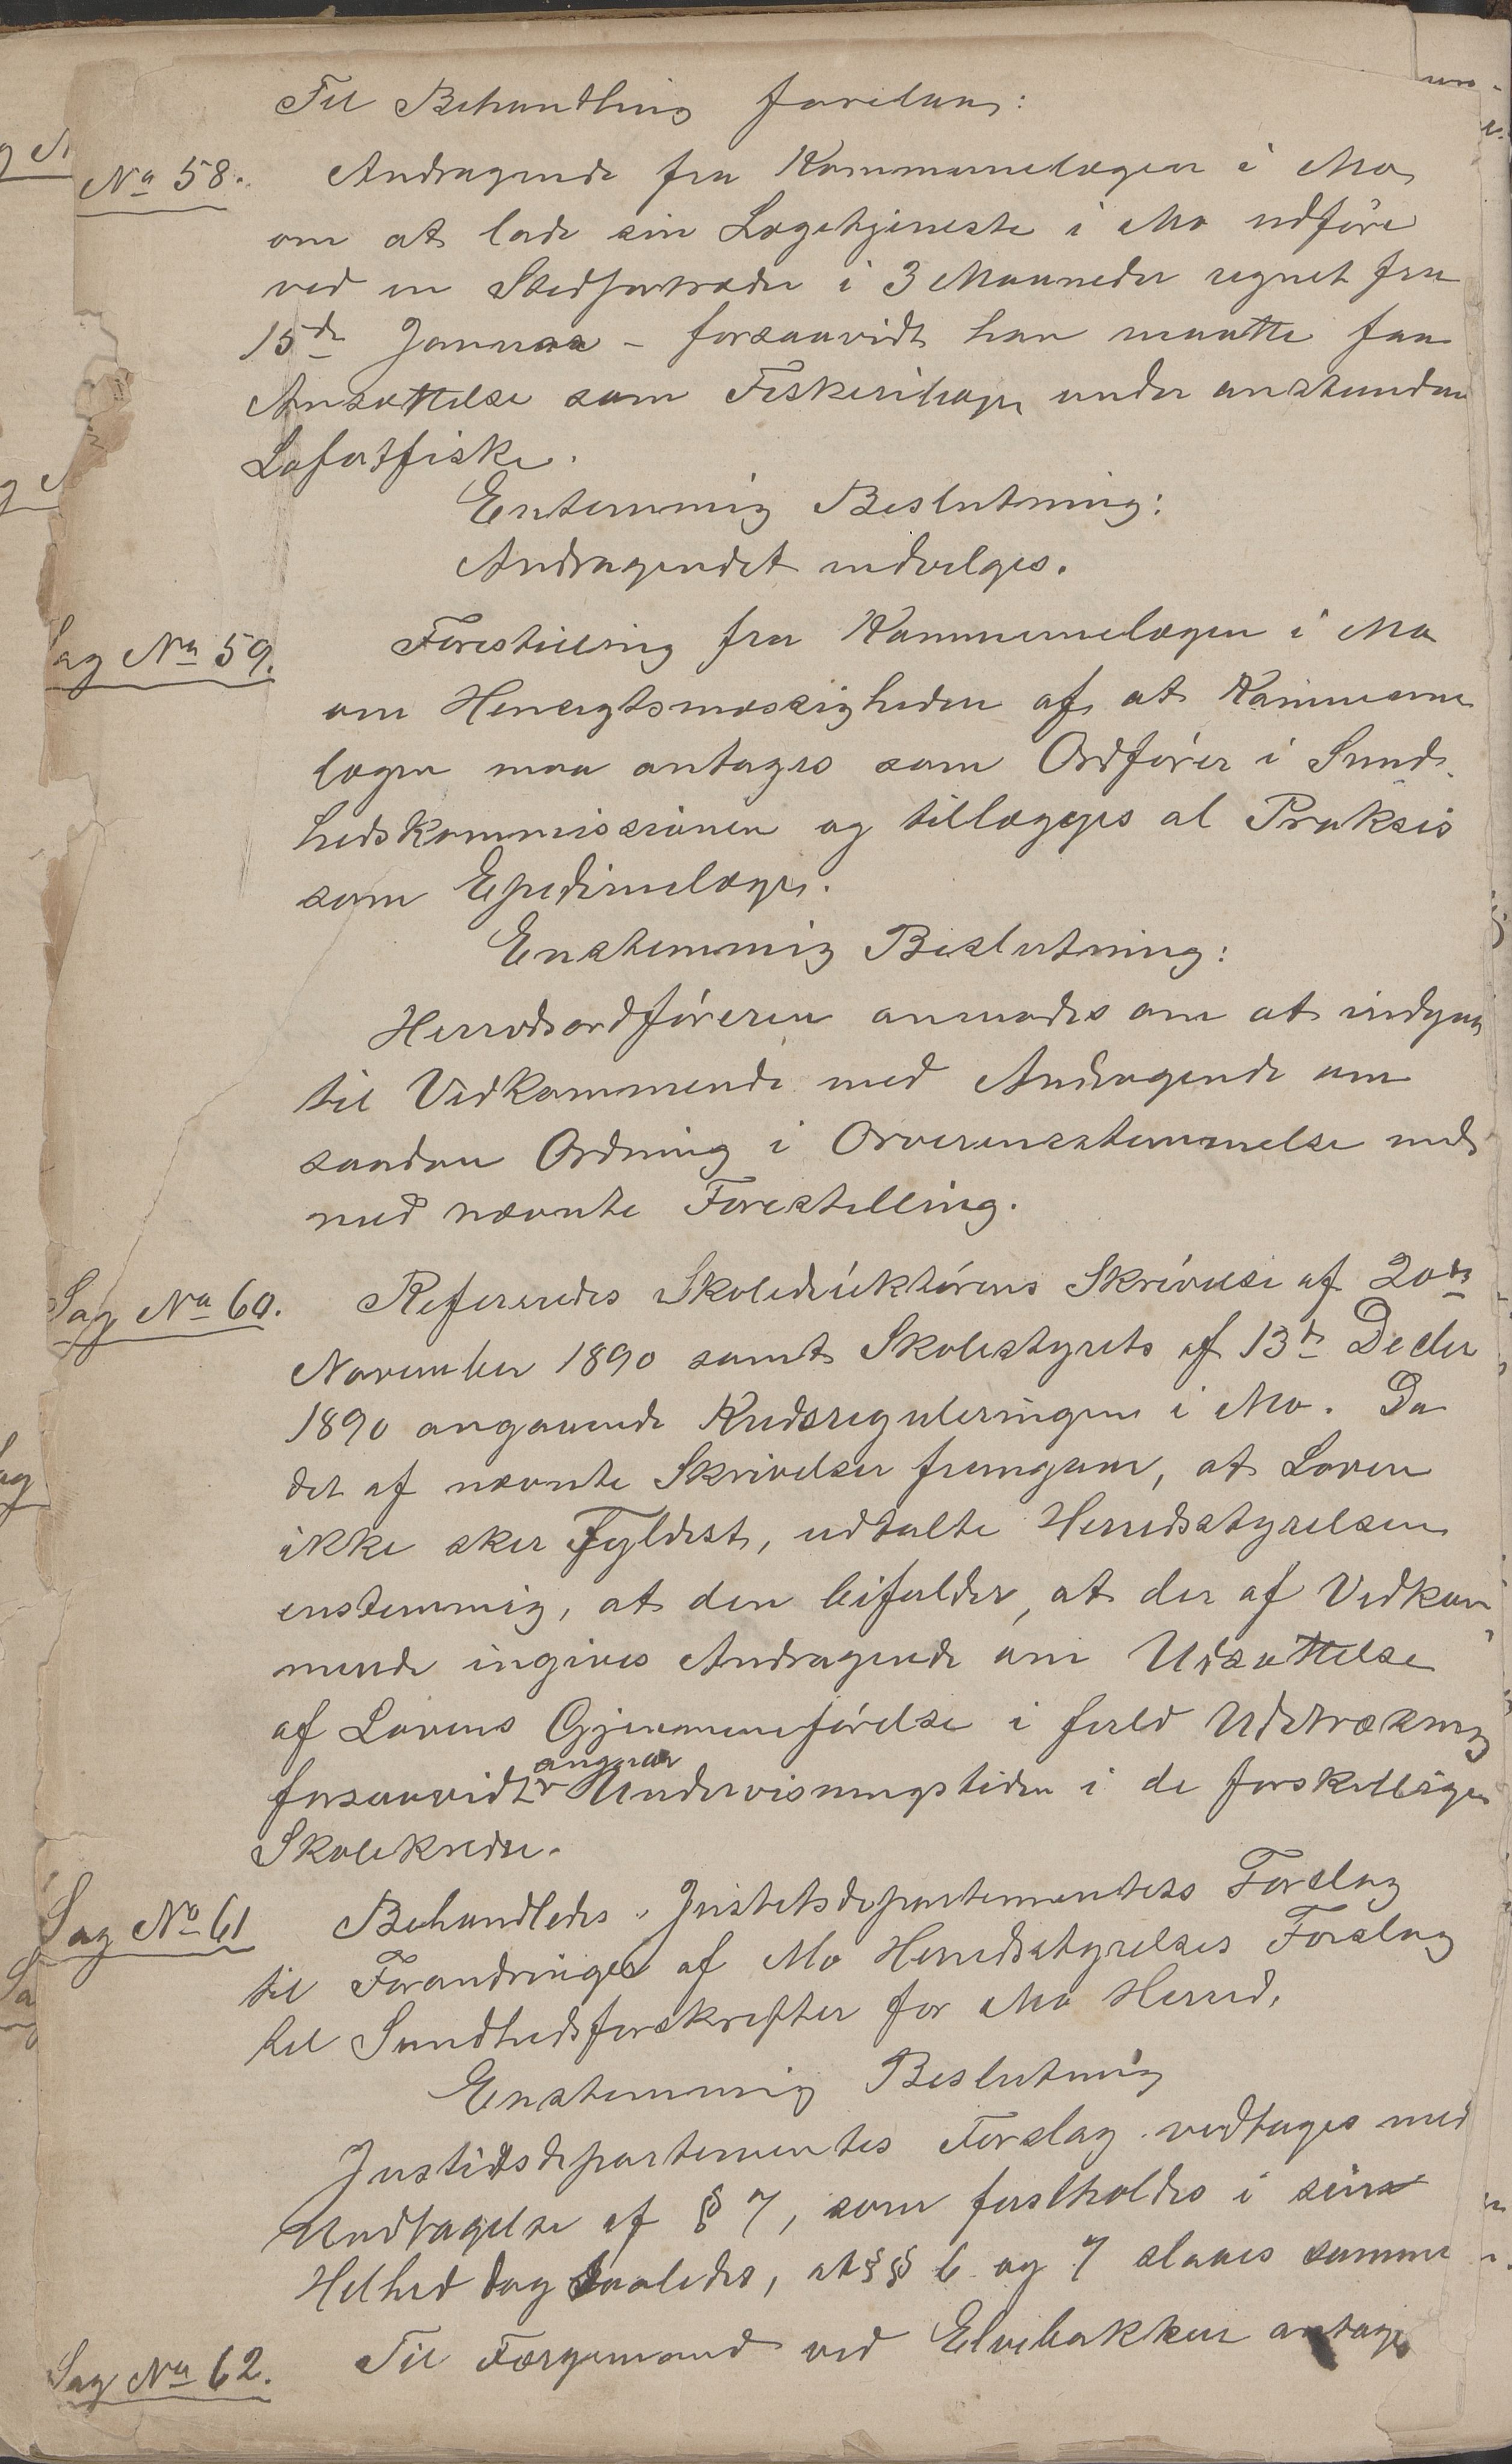 Til Behandling forelaa:
No 58. Andragende fra Kommunelægen i Mo
om at lade sin Lægetjeneste i Mo udføre
ved en Stedfortræder i 3 Maaneder regnet fra
15de Januar - forsaavidt han maatte faa
Ansættelse som Fiskerilæge under anstundende
Lofotfiske.
Enstemmig Beslutning:
Andragendet indvilges.
Sag No 59. Forestilling fra Kommunelægen i Mo
om Hensigtsmæssigheden af at Kommune
lægen maa antages som Ordfører i Sund-
hedskommissionen og tillægges al Praksis
som Epedimelæge.
Enstemmig Beslutning:
Herredsordføreren anmodes om at indgaa
til Vedkommende med Andragende om
saadan Ordning i Overensstemmelse med
med nævnte Forestilling.
Sag No 60. Refereredes Skoledirektørens Skrivelse af 20de
November 1890 samt Skolestyrets af 13de Decbr
1890 angaaende Kredsreguleringen i Mo. Da
det af nævnte Skrivelser fremgaar, at Loven
ikke sker Fyldest, udtalte Herredsstyrelsen
enstemmig, at den bifalder, at der af Vedkom
mende ingives Andragende om Udsættelse
af Lovens Gjennemførelse i fuld Udstrækning
forsaavidt angaar Undervisningstiden i de forskjellige
Skolekredse.
Sag No 61 Behandledes Justitsdepartementets Forslag
til Forandringer af Mo Herredsstyrelses Forslag
til Sundhedsforskrifter for Mo Herred.
Enstemmig Beslutning
Justitsdepartementes Forslag vedtages med
Undtagelse af § 7, som fastholdes i sin
Helhed dog saaledes, at §§ 6 og 7 slaaes samme
Sag No 62. Til Færgemand ved Elvebakken antages